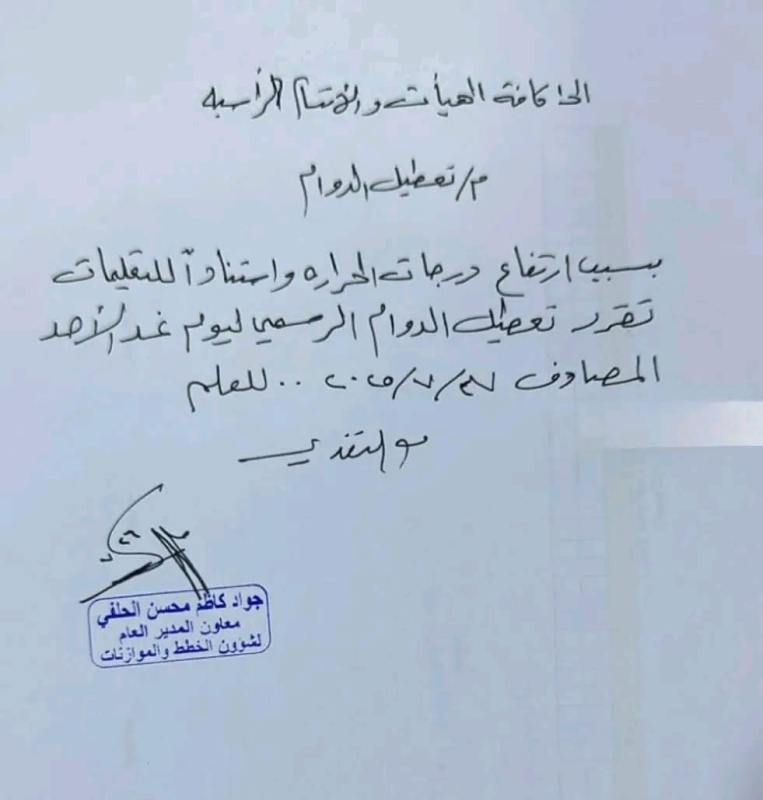 الى كافة الهيأت والاقسام الرأسيه
م/ تعطيل الدوام
بسبب ارتفاع درجات الحراره واستناداً للتعليمات
تقرر تعطيل الدوام الرسمي ليوم غد الأحد
المصادف ٢٧/٧/٢٠٢٥ .. للعلم
مع التقدير
جواد كاظم محسن الحلفي
معاون المدير العام
لشؤون الخطط والموازنات